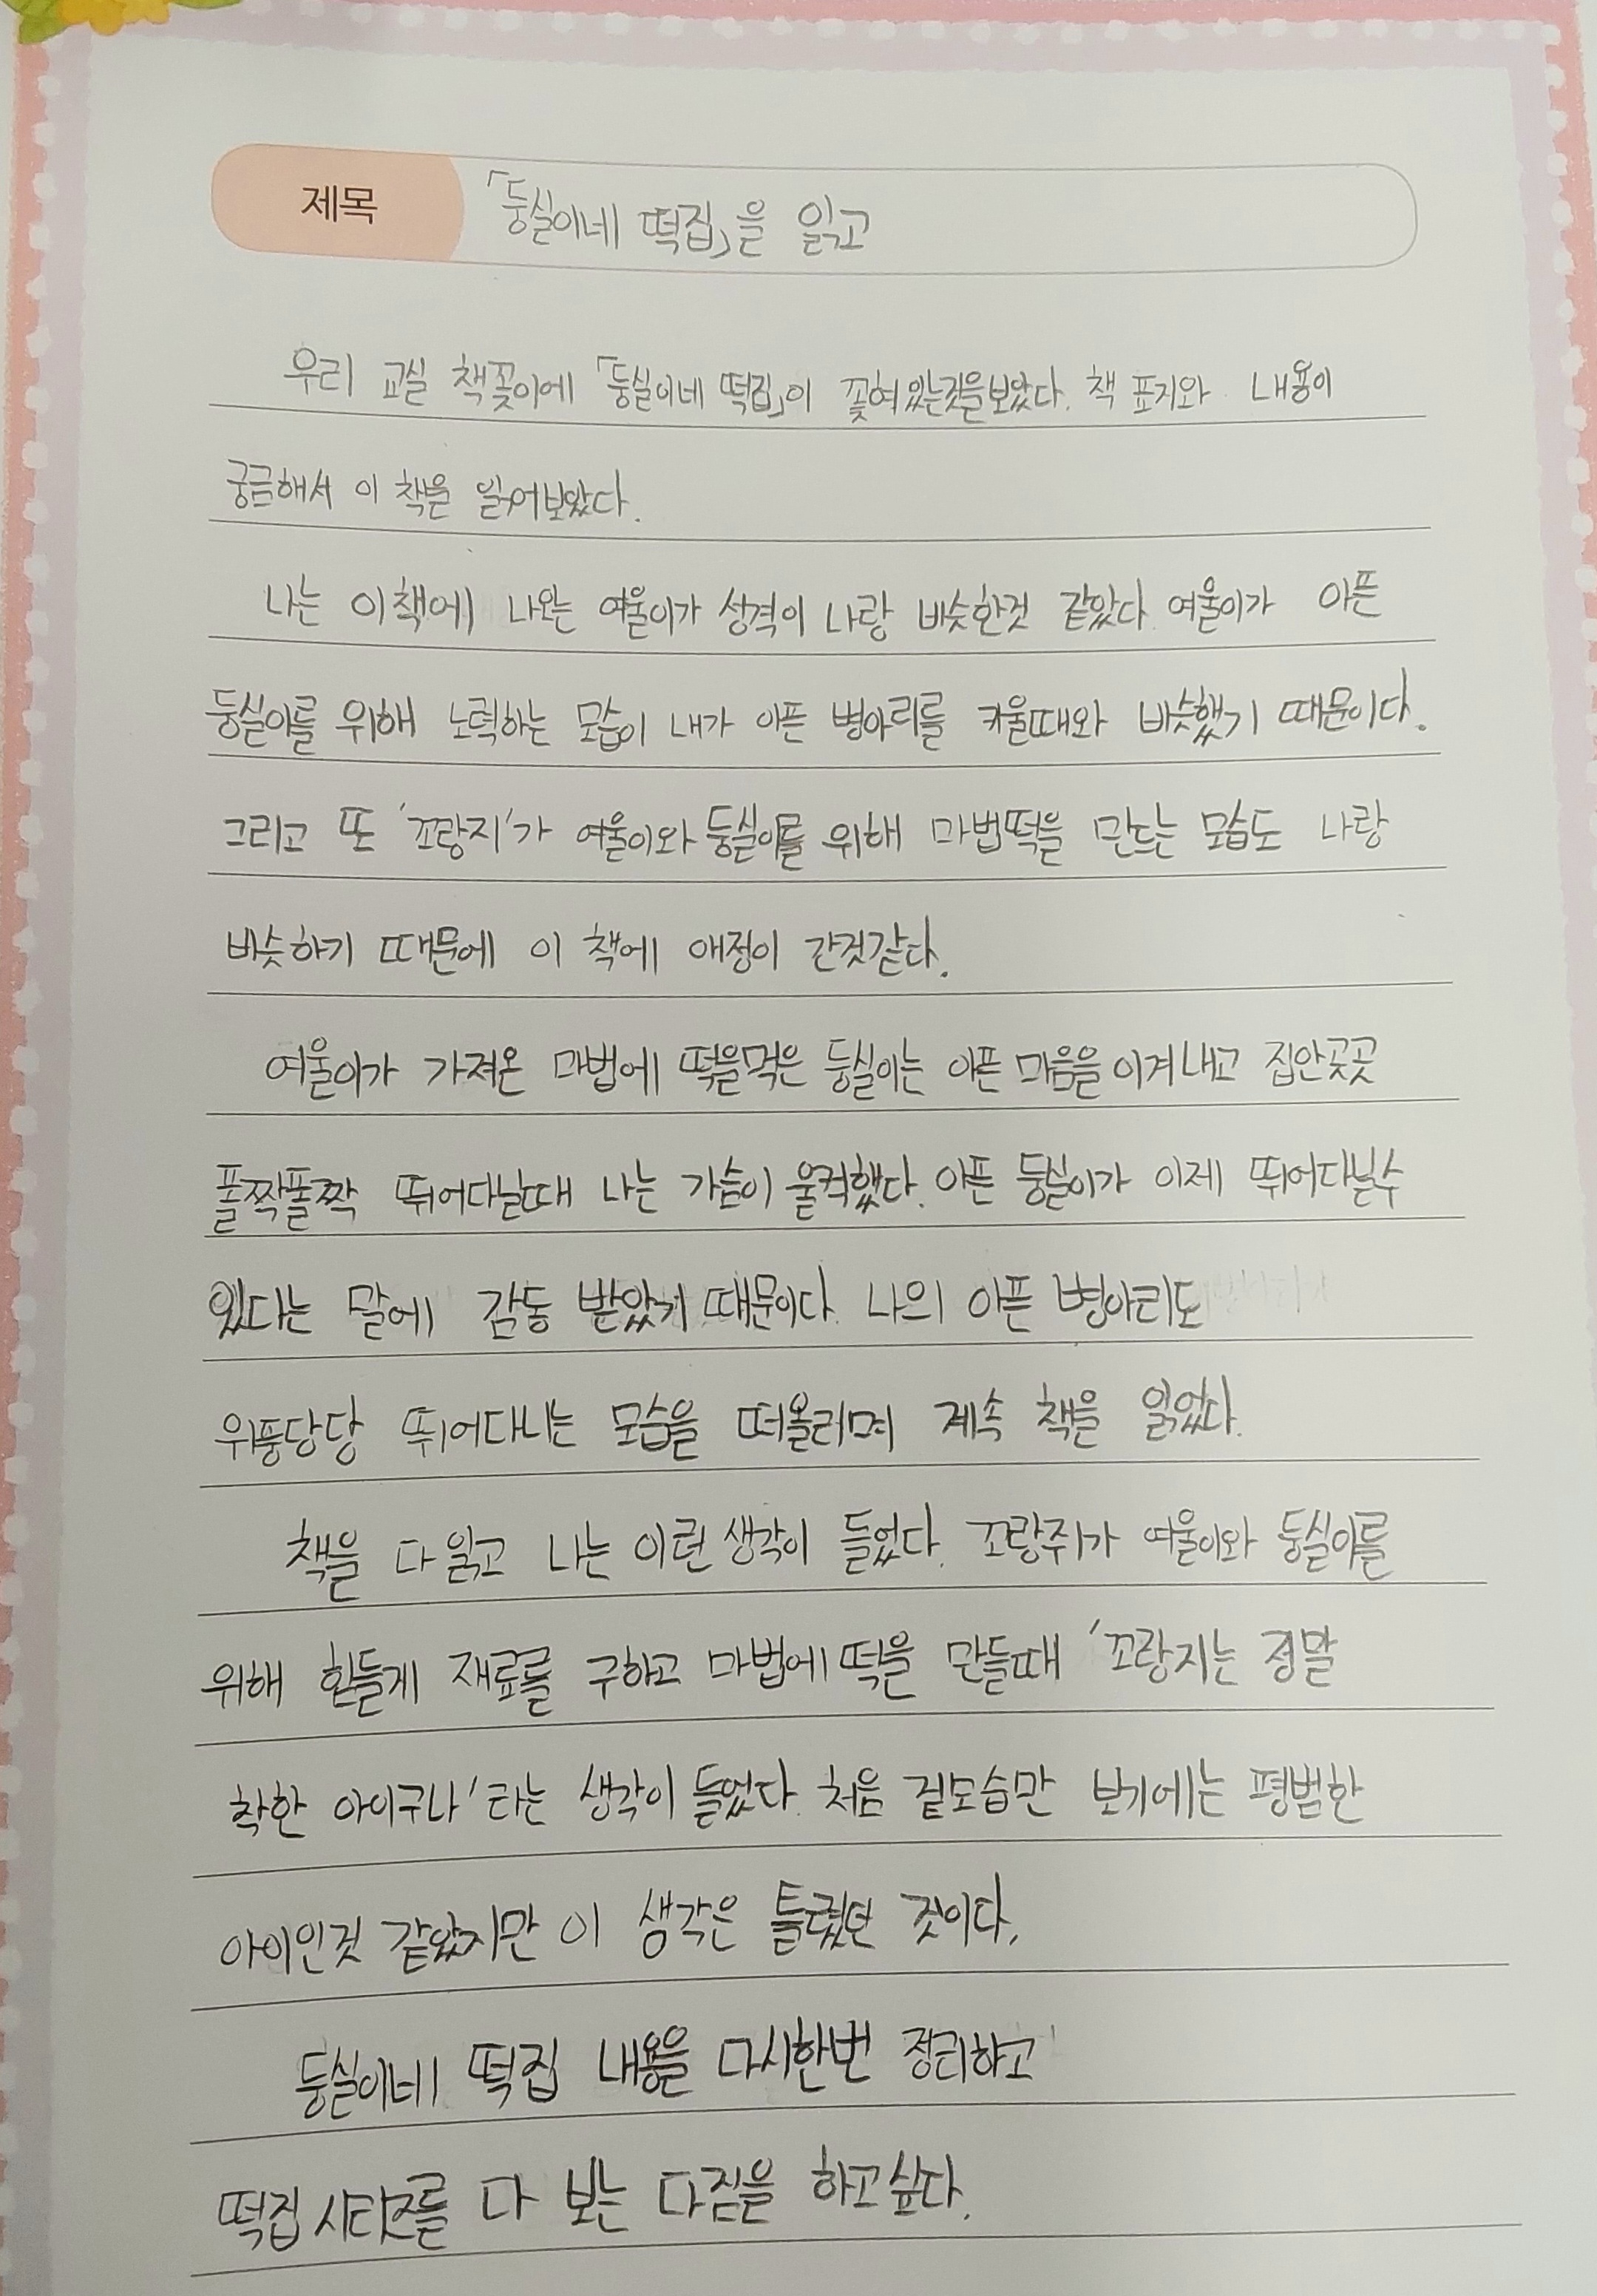 제목 「둥실이네 떡집」을 읽고
우리 교실 책꽂이에 「둥실이네 떡집」이 꽂혀있는것을보았다. 책 표지와 내용이
궁금해서 이 책을 읽어보았다.
나는 이책에 나오는 여울이가 성격이 나랑 비슷한것 같았다. 여울이가 아픈
둥실이를 위해 노력하는 모습이 내가 아픈 병아리를 키울때와 비슷했기 때문이다.
그리고 또 '꼬랑지'가 여울이와 둥실이를 위해 마법떡을 만드는 모습도 나랑
비슷하기 때문에 이 책에 애정이 간것같다.
여울이가 가져온 마법에 떡을먹은 둥실이는 아픈 마음을 이겨내고 집안곳곳
폴짝폴짝 뛰어다닐때 나는 가슴이 울컥했다. 아픈 둥실이가 이제 뛰어다닐수
있다는 말에 감동 받았기 때문이다. 나의 아픈 병아리도
위풍당당 뛰어다니는 모습을 떠올리며 계속 책을 읽었다.
책을 다 읽고 나는 이런 생각이 들었다. 꼬랑쥐가 여울이와 둥실이를
위해 힘들게 재료를 구하고 마법에 떡을 만들때 '꼬랑지는 정말
착한 아이구나'라는 생각이 들었다. 처음 겉모습만 보기에는 평범한
아이인것 같았지만 이 생각은 틀렸던 것이다.
둥실이네 떡집 내용을 다시한번 정리하고
떡집 시리즈를 다 보는 다짐을 하고싶다.